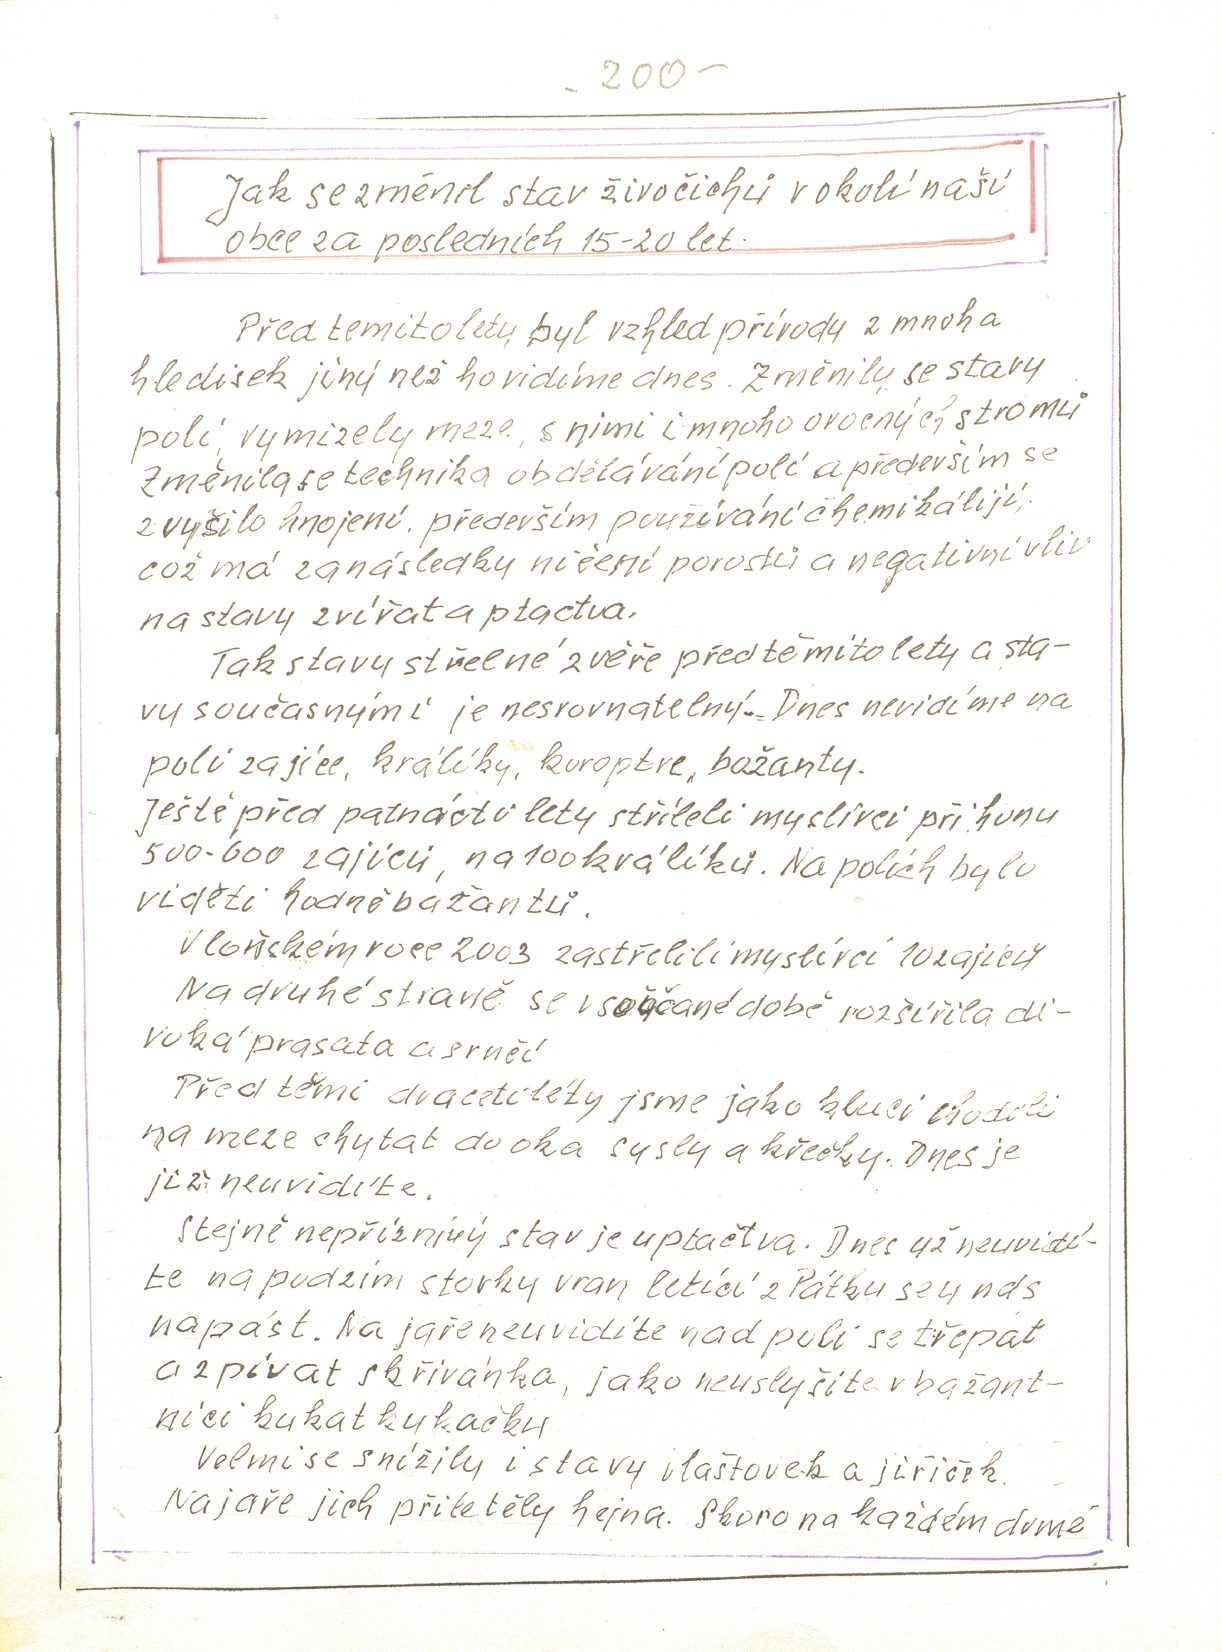 - 200 -
Jak se změnil stav živočichů v okolí naší
obce za posledních 15-20 let.
Před temito lety byl vzhled přírody z mnoha
hledisek jiný než ho vidíme dnes. Změnily se stavy
polí, vymizely meze, s nimi i mnoho ovocných stromů
Změnila se technika obdělávání polí a především se
zvýšilo hnojení. především používání chemikálijí,
což má za následky ničení porostů a negativní vliv
na stavy zvířat a ptactva.
Tak stavy střelné zvěře před těmito lety a sta-
vy současnými je nesrovnatelný. Dnes nevidíme na
polí zajíce, králíky, koroptve, bažanty.
Ještě před patnácti lety stříleli myslivci při honu
500-600 zajíců, na 100 králíků. Na polích bylo
viděti hodně bažantů.
V loňském roce 2003 zastřelili myslivci 10 zajíců
Na druhé straně se v součané době rozšířila di-
voká prasata a srnčí
Před těmi dvacetiléty jsme jako kluci chodili
na meze chytat do oka sysly a křečky. Dnes je
již neuvidíte.
Stejně nepříznivý stav je u ptačtva. Dnes už neuvidí-
te na podzim stovky vran letící z Pátku se u nás
napást. Na jaře neuvidíte nad poli se třepat
a zpívat skřivánka, jako neuslyšíte v bažant-
nici kukat kukačku
Velmi se snížily i stavy vlaštovek a jiřiček.
Na jaře jich přiletěly hejna. Skoro na každém domě